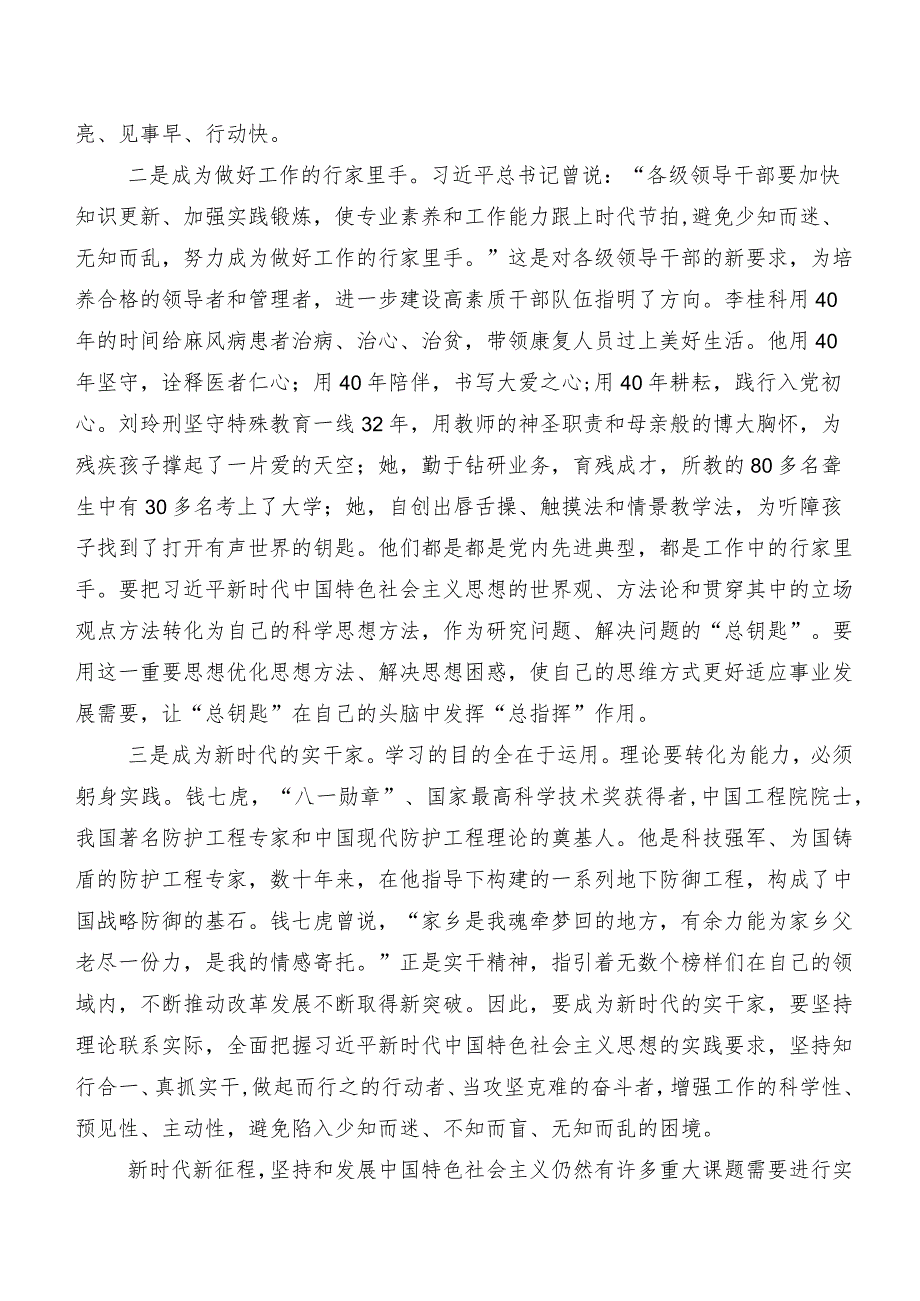 亮、见事早、行动快。
二是成为做好工作的行家里手。习近平总书记曾说：“各级领导干部要加快
知识更新、加强实践锻炼，使专业素养和工作能力跟上时代节拍,避免少知而迷、
无知而乱，努力成为做好工作的行家里手。”这是对各级领导干部的新要求，为培
养合格的领导者和管理者，进一步建设高素质干部队伍指明了方向。李桂科用 40
年的时间给麻风病患者治病、治心、治贫，带领康复人员过上美好生活。他用 40
年坚守，诠释医者仁心；用 40 年陪伴，书写大爱之心;用 40 年耕耘，践行入党初
心。刘玲刑坚守特殊教育一线 32 年，用教师的神圣职责和母亲般的博大胸怀，为
残疾孩子撑起了一片爱的天空；她，勤于钻研业务，育残成才，所教的 80 多名聋
生中有 30 多名考上了大学；她，自创出唇舌操、触摸法和情景教学法，为听障孩
子找到了打开有声世界的钥匙。他们都是都是党内先进典型，都是工作中的行家里
手。要把习近平新时代中国特色社会主义思想的世界观、方法论和贯穿其中的立场
观点方法转化为自己的科学思想方法，作为研究问题、解决问题的“总钥匙”。要
用这一重要思想优化思想方法、解决思想困惑，使自己的思维方式更好适应事业发
展需要，让“总钥匙”在自己的头脑中发挥“总指挥”作用。
三是成为新时代的实干家。学习的目的全在于运用。理论要转化为能力，必须
躬身实践。钱七虎，“八一勋章”、国家最高科学技术奖获得者,中国工程院院士，
我国著名防护工程专家和中国现代防护工程理论的奠基人。他是科技强军、为国铸
盾的防护工程专家，数十年来，在他指导下构建的一系列地下防御工程，构成了中
国战略防御的基石。钱七虎曾说，“家乡是我魂牵梦回的地方，有余力能为家乡父
老尽一份力，是我的情感寄托。”正是实干精神，指引着无数个榜样们在自己的领
域内，不断推动改革发展不断取得新突破。因此，要成为新时代的实干家，要坚持
理论联系实际，全面把握习近平新时代中国特色社会主义思想的实践要求，坚持知
行合一、真抓实干,做起而行之的行动者、当攻坚克难的奋斗者,增强工作的科学性、
预见性、主动性，避免陷入少知而迷、不知而盲、无知而乱的困境。
新时代新征程,坚持和发展中国特色社会主义仍然有许多重大课题需要进行实